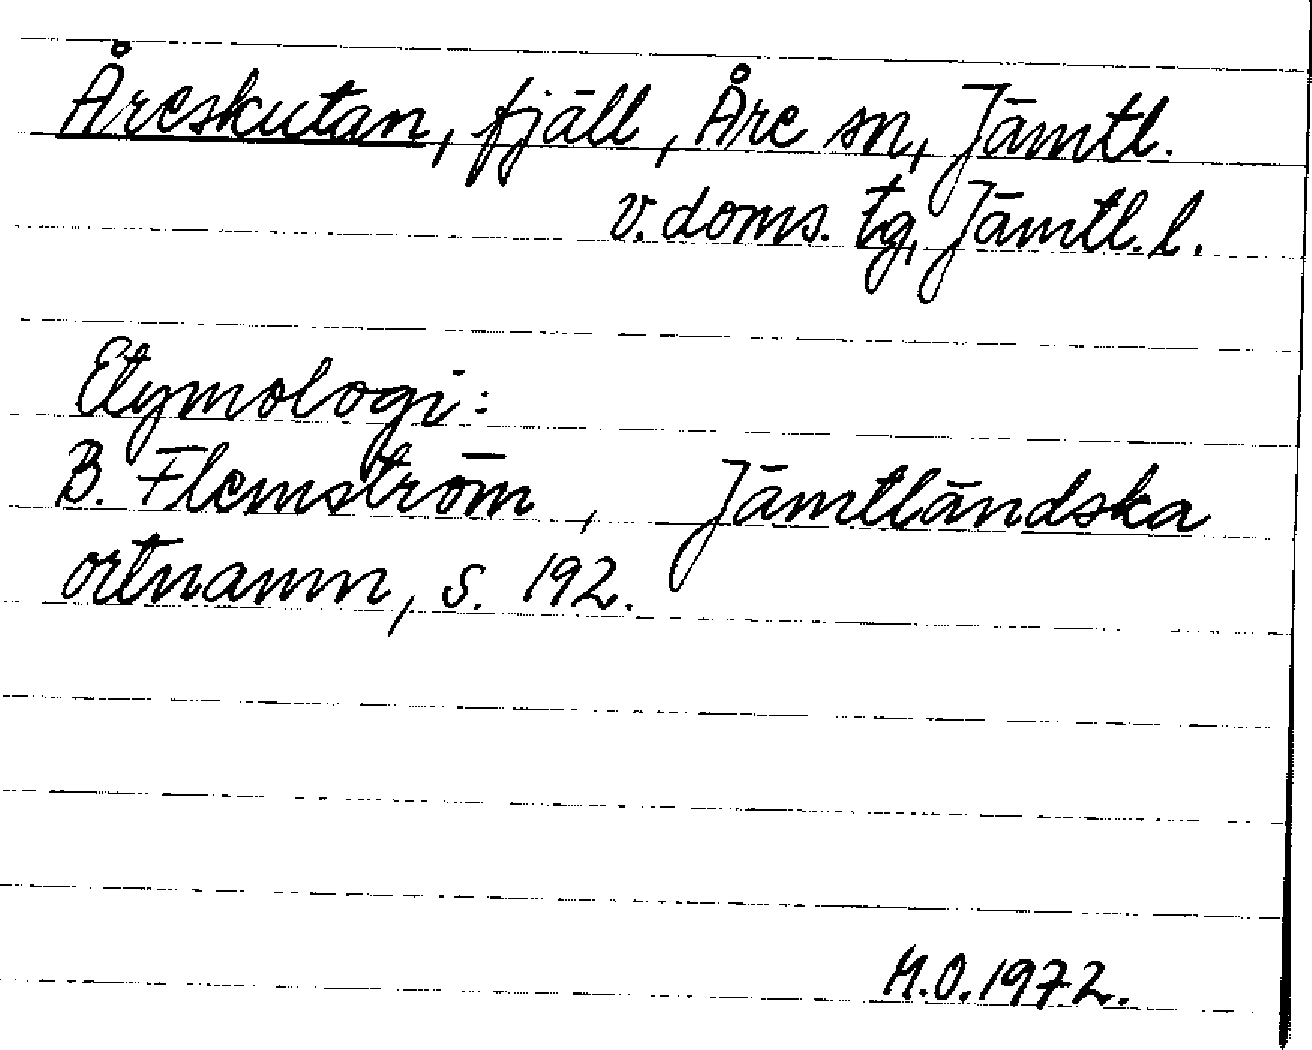 Åreskutan, fjäll, Åre sn, Jämtl.
v. doms. tg, Jämtl. l.
Etymologi:
B. Flemström, Jämtländska
ortnamn, s. 192.
M.O. 1972.